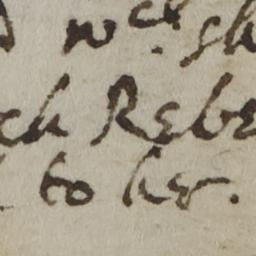 wch. sh
ch Rebe
to her.